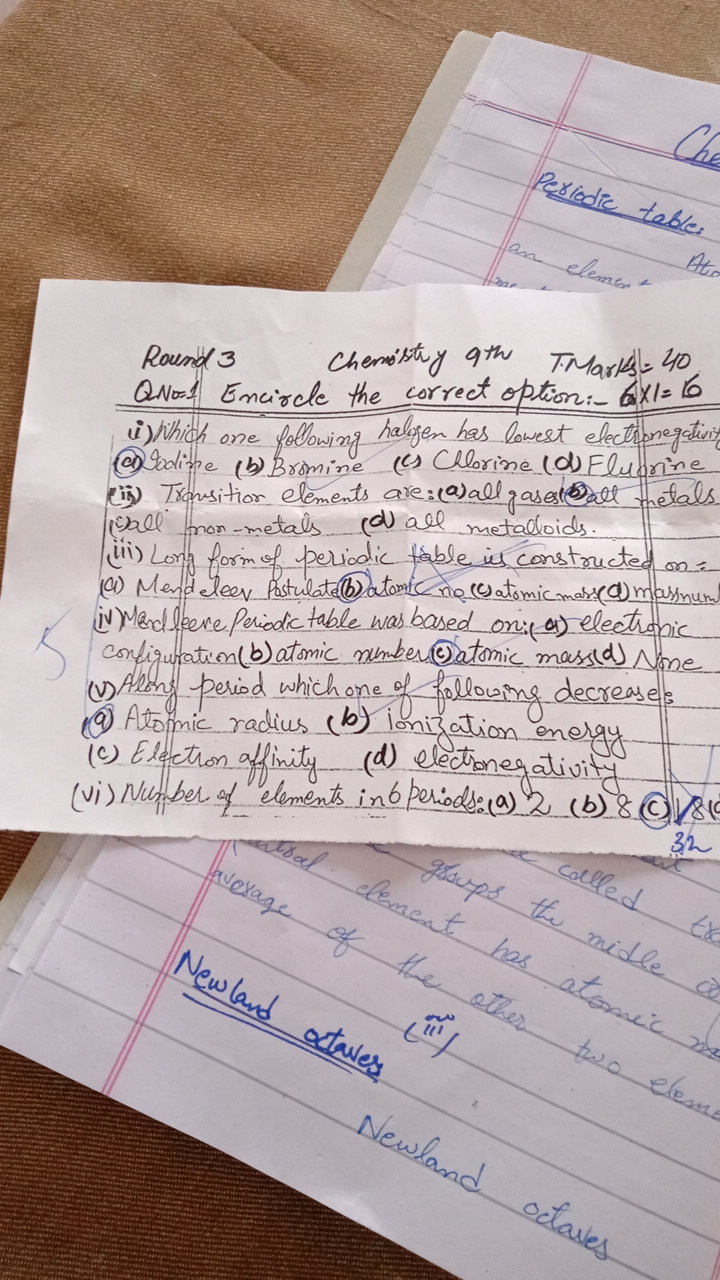 Che
Periodic table:
Ato
an element
Round 3 Chemistry 9th T.Marks = 40
Q.No=1 Encircle the correct option:- 6X1=6
(i) Which one following halogen has lowest electronegativity
(a) Iodine (b) Bromine (c) Chlorine (d) Fluorine
(ii) Transition elements are: (a) all gases (b) all metals
(c) all non-metals (d) all metalloids.
(iii) Long form of periodic table is constructed on =
(a) Mendeleev Postulate (b) atomic no (c) atomic mass (d) massnum
(iv) Mendleeve Periodic table was based on: (a) electronic
configuration (b) atomic number (c) atomic mass (d) None
(v) Along period which one of following decrease:
(a) Atomic radius (b) ionization energy
(c) Electron affinity (d) electronegativity
(vi) Number of elements in 6 periods: (a) 2 (b) 8 (c) 18 (d
32
5
groups the midle
called
element has atomic
average of the other two eleme
Newland octaves
(iii)
Newland octaves